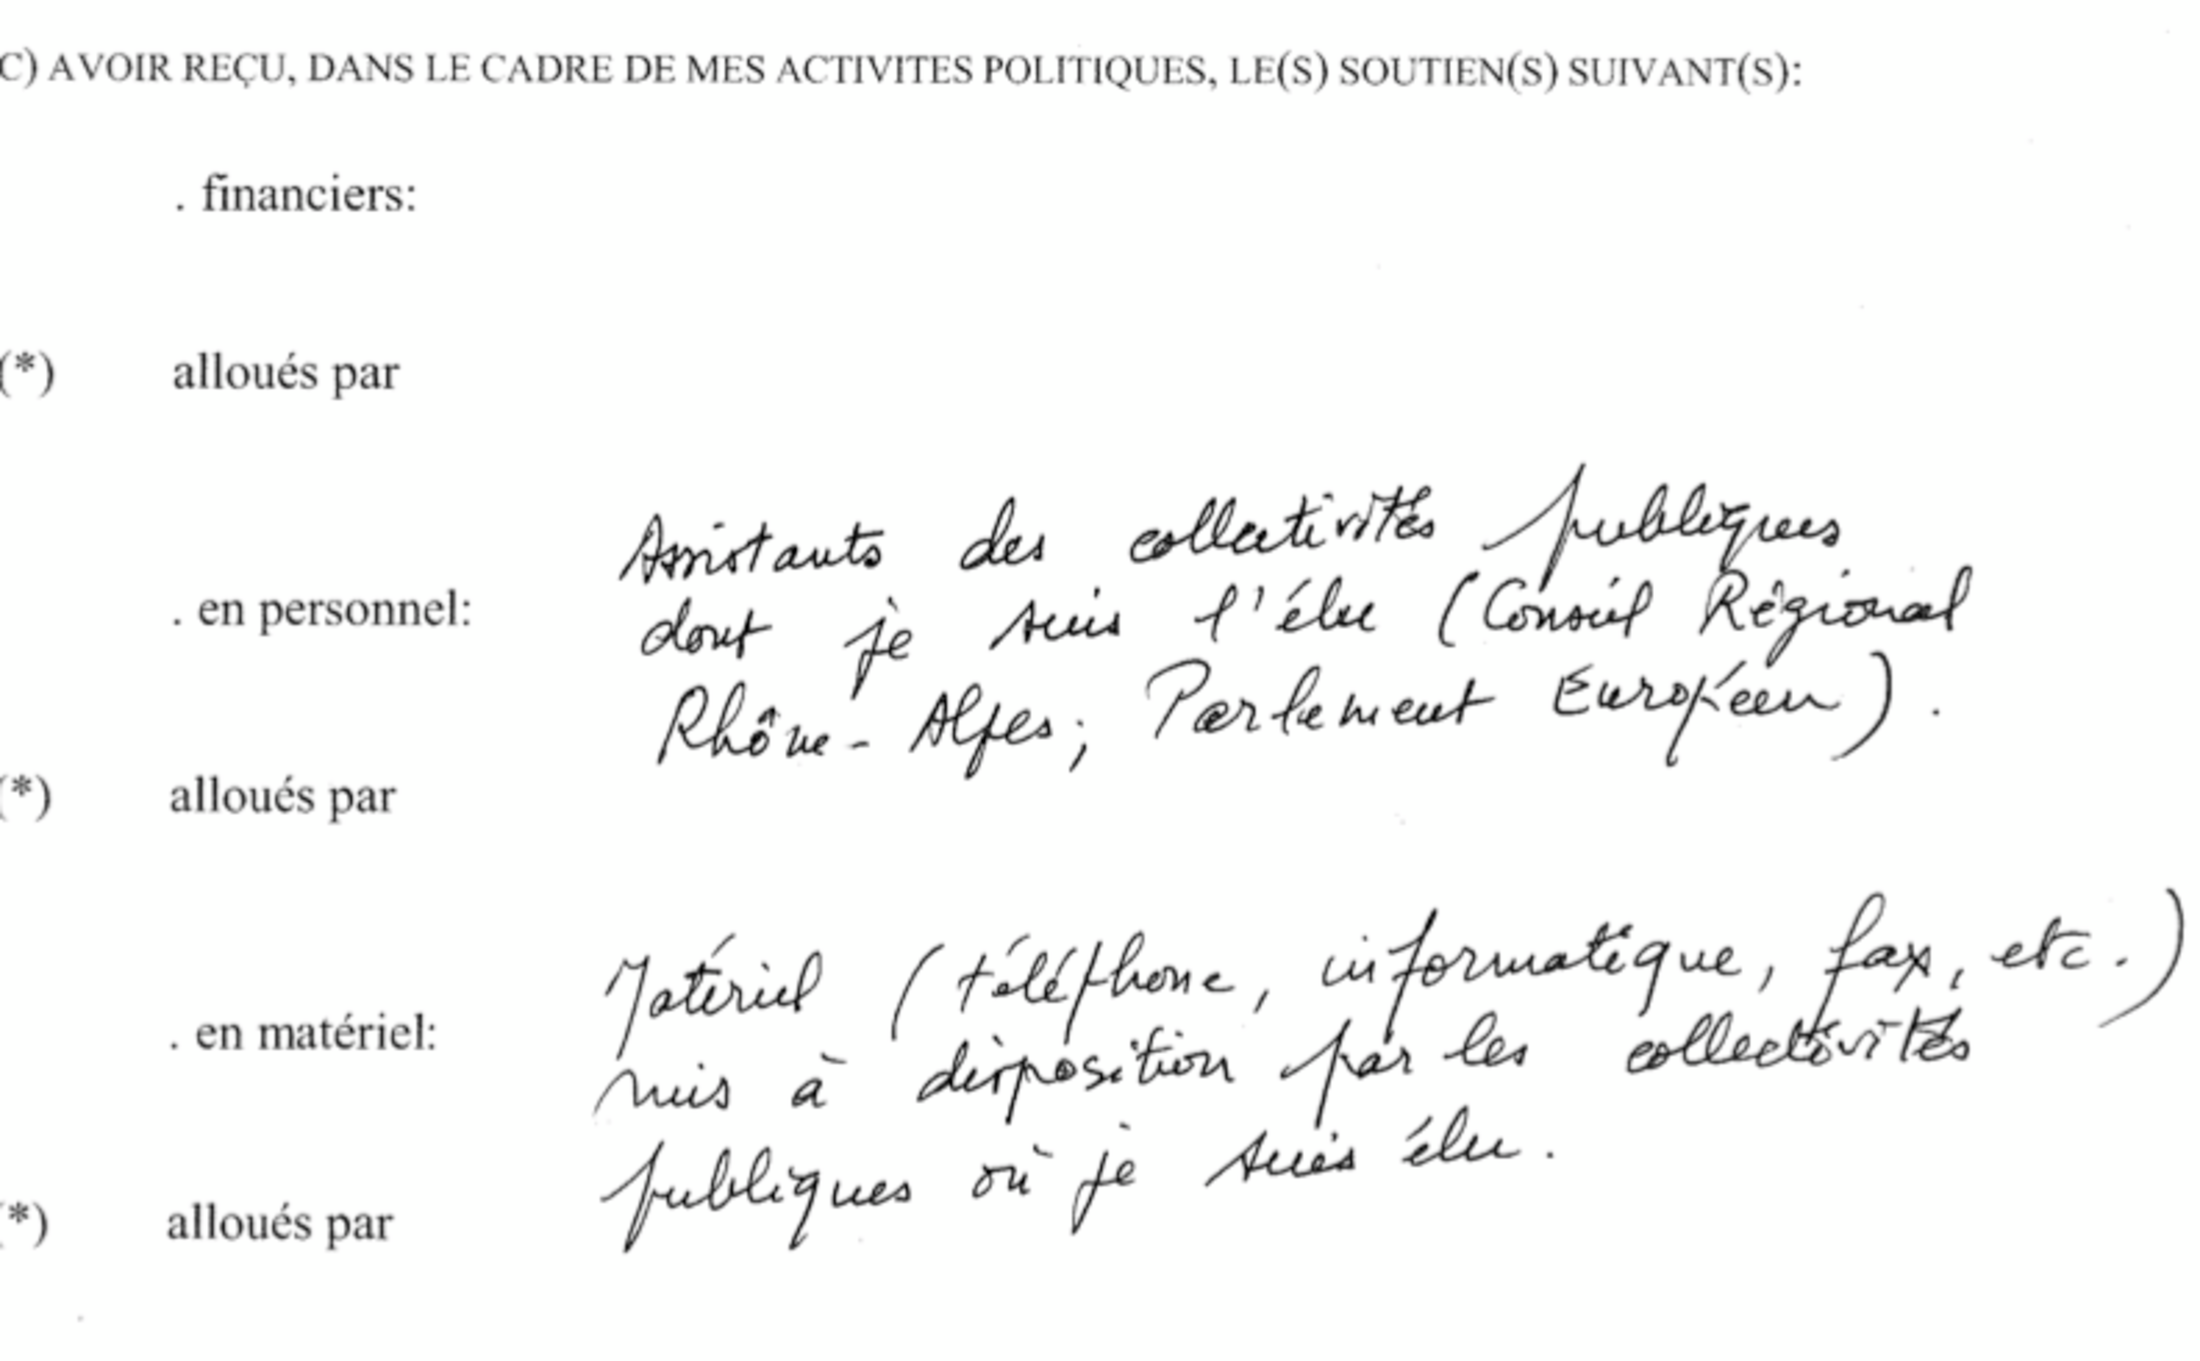 C) AVOIR REÇU, DANS LE CADRE DE MES ACTIVITES POLITIQUES, LE(S) SOUTIEN(S) SUIVANT(S):
. financiers:
(*) alloués par
Assistants des collectivités publiques
. en personnel: dont je suis l'élu (Conseil Régional
Rhône-Alpes; Parlement Européen).
(*) alloués par
Matériel (téléphone, informatique, fax, etc.)
. en matériel: mis à disposition par les collectivités
publiques où je suis élu.
(*) alloués par